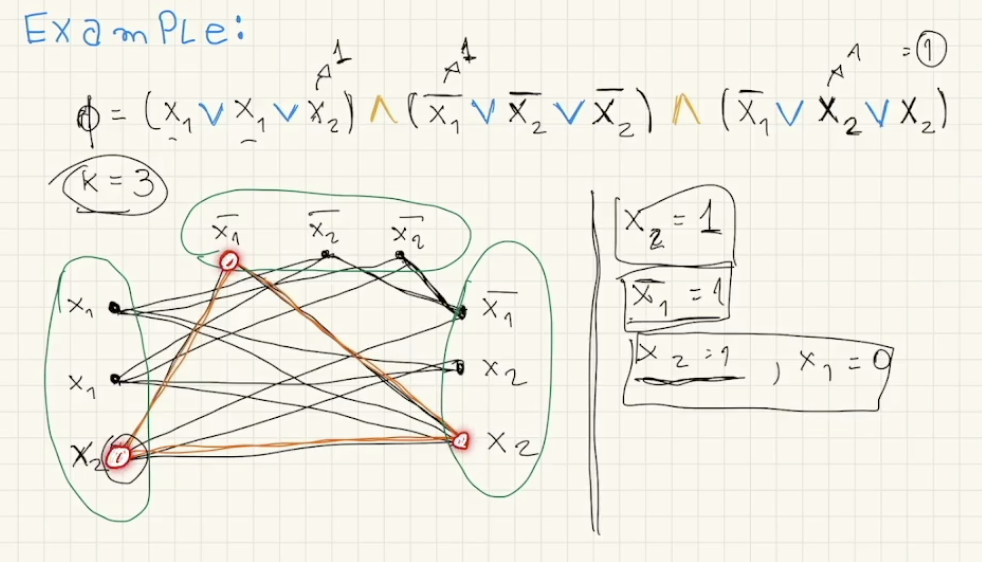 Example:
1 1 1 = 1
ϕ = (x₁ ∨ x₁ ∨ x₂) ∧ (x̅₁ ∨ x̅₂ ∨ x̅₂) ∧ (x̅₁ ∨ x₂ ∨ x₂)
k = 3
x̅₁ x̅₂ x̅₂
x₁
x₁
x₂
x̅₁
x₂
x₂
x₂ = 1
x̅₁ = 1
x₂ = 1 , x₁ = 0